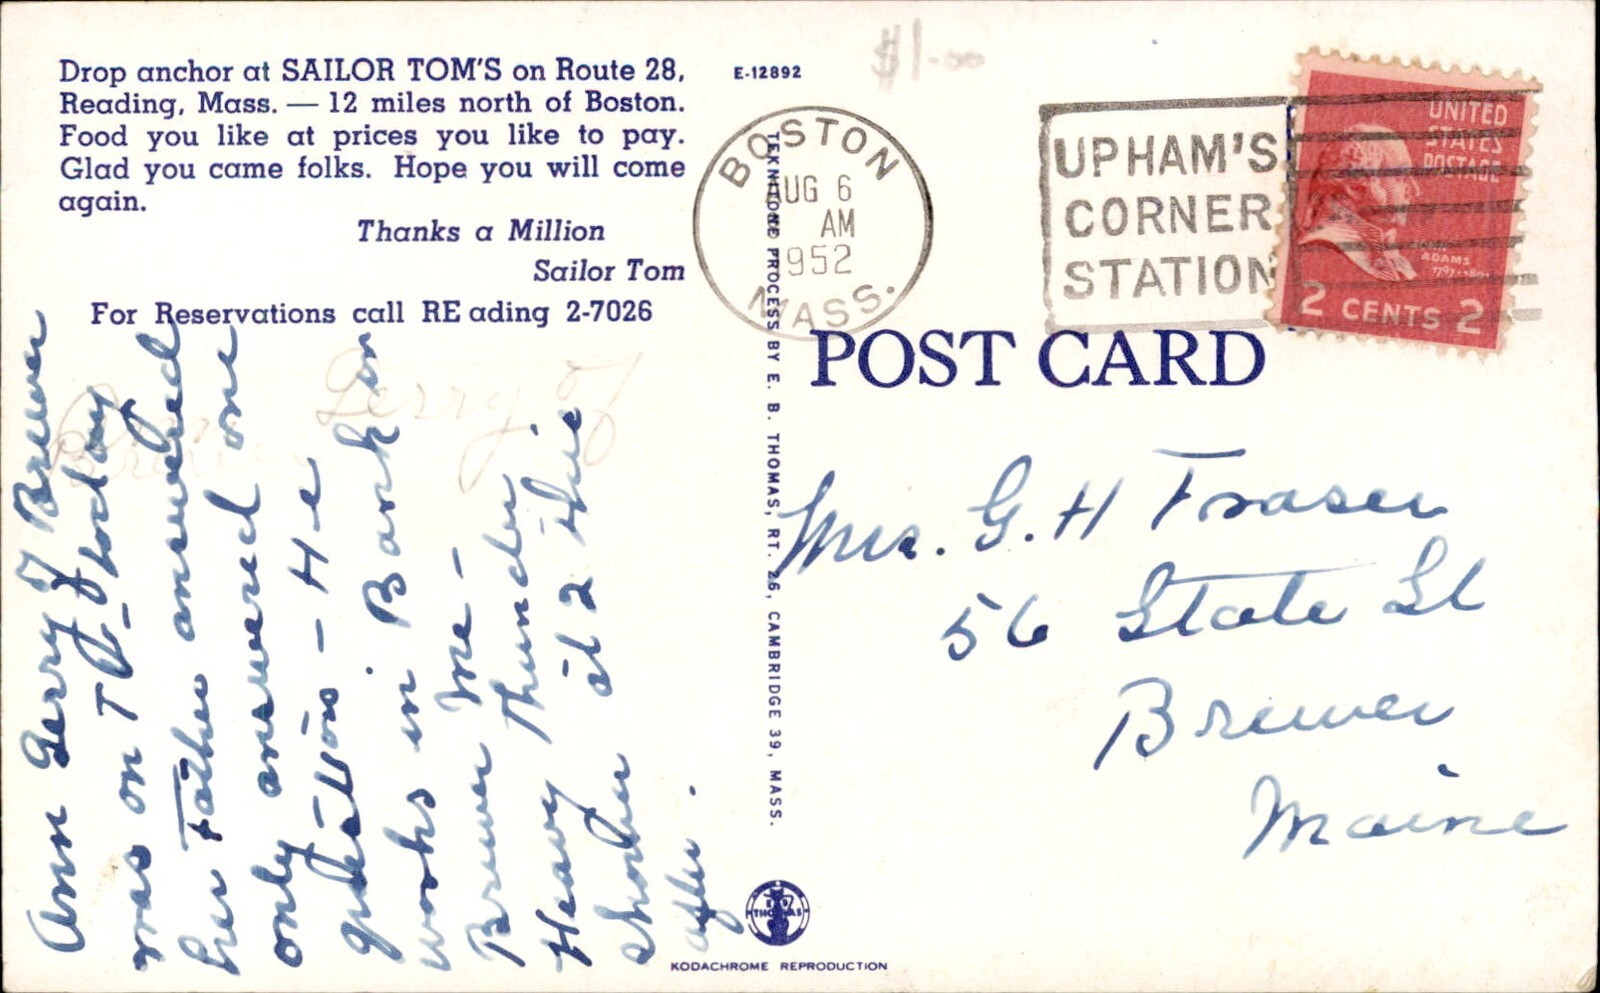 $1.00
Drop anchor at SAILOR TOM'S on Route 28,
Reading, Mass. — 12 miles north of Boston.
Food you like at prices you like to pay.
Glad you came folks. Hope you will come
again.
Thanks a Million
Sailor Tom
For Reservations call REading 2-7026
E-12892
BOSTON
AUG 6
AM
1952
MASS.
UPHAM'S
CORNER
STATION
UNITED
STATES
POSTAGE
ADAMS
2 CENTS 2
POST CARD
TEKNITONE PROCESS BY E. B. THOMAS, RT. 26, CAMBRIDGE 39, MASS.
Gerry of
Ann Gerry of Brewer
was on T V - today
her Father answered
only answered one
question - He
works in Bank in
Brewer Me -
Heavy Thunder
shower at 2 this
after.
Mrs. G. H Fraser
56 State St
Brewer
Maine
THOMAS
KODACHROME REPRODUCTION